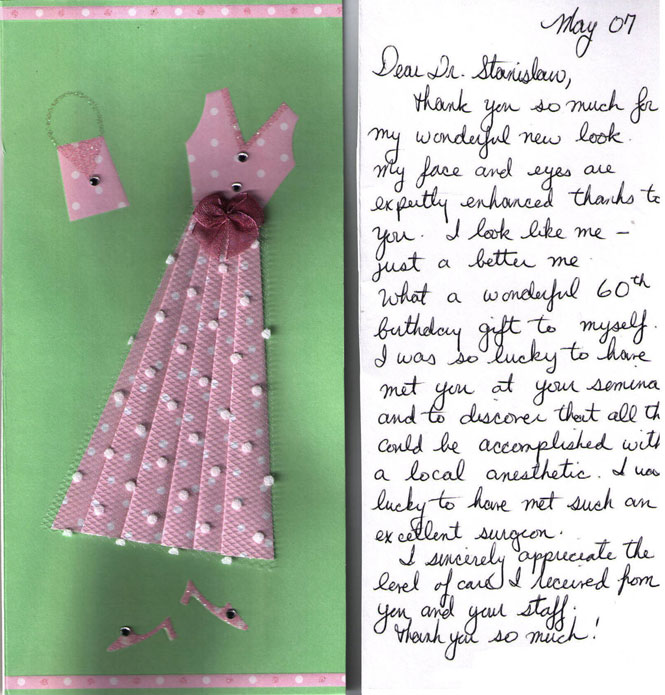 May 07
Dear Dr. Stanislaw,
Thank you so much for
my wonderful new look.
My face and eyes are
expertly enhanced thanks to
you. I look like me -
just a better me.
What a wonderful 60th
birthday gift to myself.
I was so lucky to have
met you at your semina
and to discover that all th
could be accomplished with
a local anesthetic. I was
lucky to have met such an
excellent surgeon.
I sincerely appreciate the
level of care I received from
you and your staff.
Thank you so much!